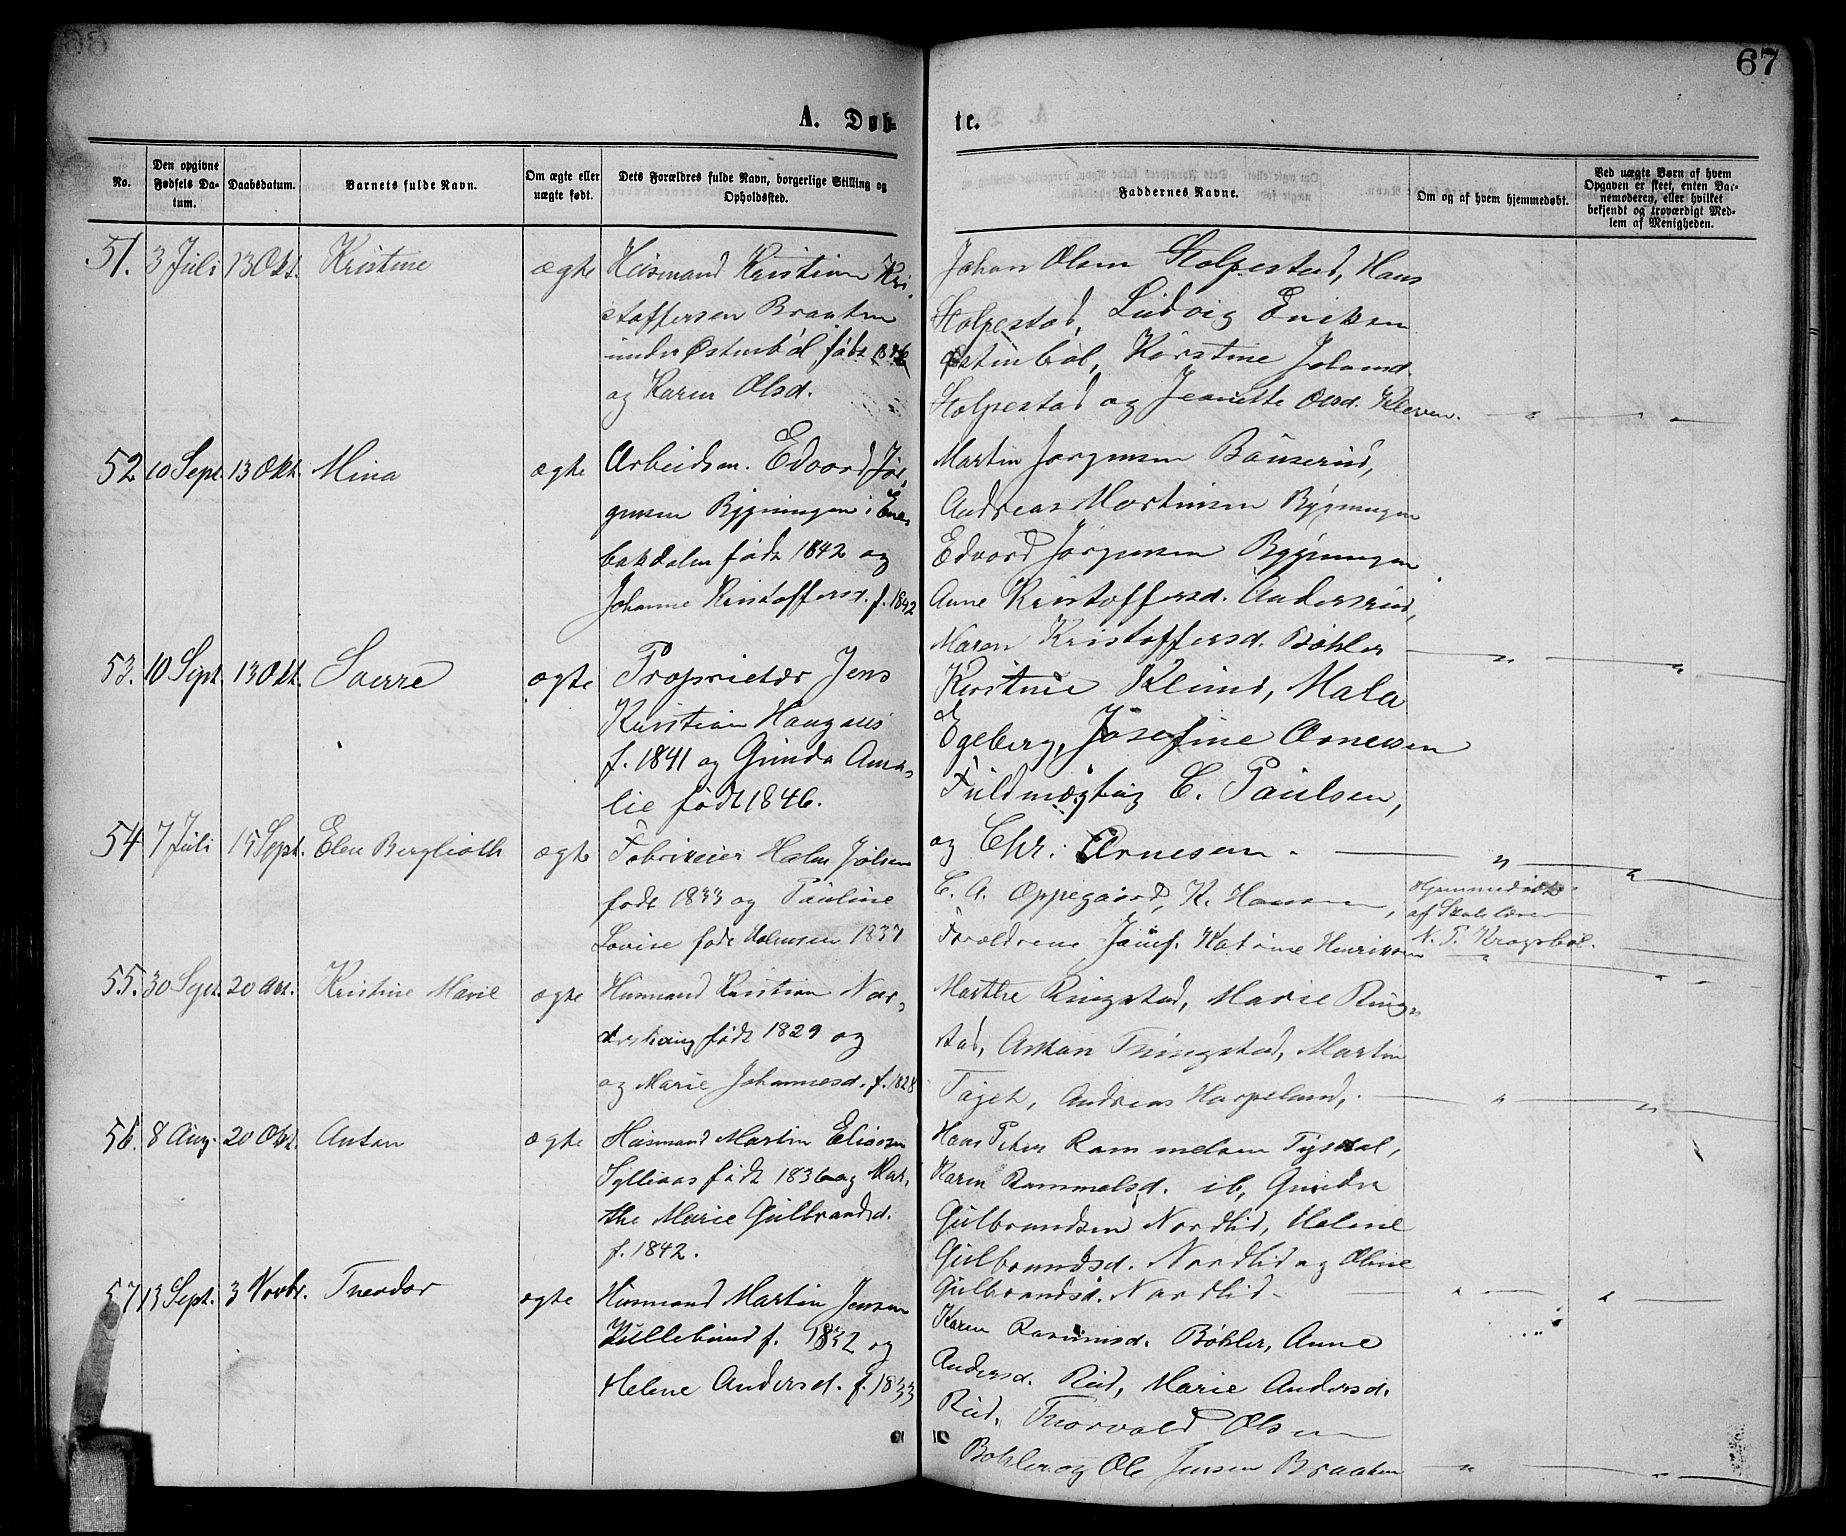 67
A. Døb- te.
No.
Den opgivne Fødsels Datum.
Daabsdatum.
Barnets fulde Navn.
Om ægte eller uægte født.
Dets Forældres fulde Navn, borgerlige Stilling og Opholdssted.
Faddernes Navne.
Om og af hvem hjemmedøbt.
Ved uægte Børn af hvem Opgaven er skeet, enten Barnemoderen, eller hvilket bekjendt og troværdigt Medlem af Menigheden.
51. 3 Juli 13 Okt. Kristine ægte
Husmand Kristian Kri-
stoffersen Braaten
under Østenbøl født 1846
og Karen Olsd.
Johan Olsen Stolpestad, Hans
Stolpestad, Ludvig Eriksen
Østenbøl, Kirstine Johansd.
Stolpestad og Jeanette Olsd. Kleven.
52 10 Sept. 13 Okt. Mina ægte
Arbeidsm. Edvard Jør-
gensen Bygningen i Ene-
bakdalen født 1842 og
Johanne Kristoffersd. f. 1842
Martin Jørgensen Bøuserud,
Andreas Martinsen Bygningen
Edvard Jørgensen Bygningen
Anne Kristoffersd. Andersrud,
Maren Kristoffersd. Bøhler
53. 10 Sept. 13 Okt. Sverre ægte
Proprietær Jens
Kristian Haugaas
f. 1841 og Gunda Ama-
lie født 1846.
Kirstine Klund, Mala
Egeberg, Josefine Arnesen
Fuldmægtig C. Paulsen,
og Chr. Arnesen.
54 7 Juli 15 Sept. Elen Berglioth ægte
Fabrikeier Halm Jølsen
født 1833 og Pauline
Lovise født Holmsen 1837
C. A. Oppegaard, K. Hansen,
Forældrene, Jomf. Katrine Henriksen
Hjemmedøbt
af Skolelærer
N. P. Kragsbøl.
55. 30 Sept. 20 Okt. Kristine Marie ægte
Husmand Kristian Nor-
derhaug født 1829 og
og Marie Johannesd. f. 1828
Marthe Ringstad, Marie Ring-
stad, Anton Tringstad, Martin
Taget, Andreas Harpeland,
56. 8 Aug. 20 Okt. Anton ægte
Husmand Martin Eliassen
Sylliaas født 1836 og Mar-
the Marie Gulbrandsd.
f. 1842.
Hans Peter Rammelsen Tysdal,
Karen Rammelsd. ib, Gunda
Gulbrandsen Nordlid, Helene
Gulbrandsd. Nordlid og Oline
Gulbrandsd. Nordlid
57. 13 Sept. 3 Novbr. Theodor ægte
Husmand Martin Jensen
Kullebund f. 1832 og
Helene Andersd. f. 1833
Karen Rasmusd. Bøhler, Anne
Andersd. Rud, Marie Andersd.
Rud, Thorvald Olsen
Bøhler og Ole Jensen Braaten